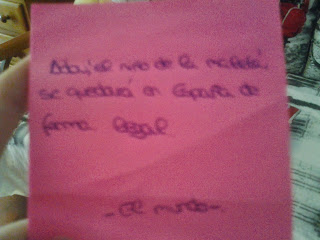 Adou, el niño de la maleta,
se quedará en España de
forma legal
- El mundo -.